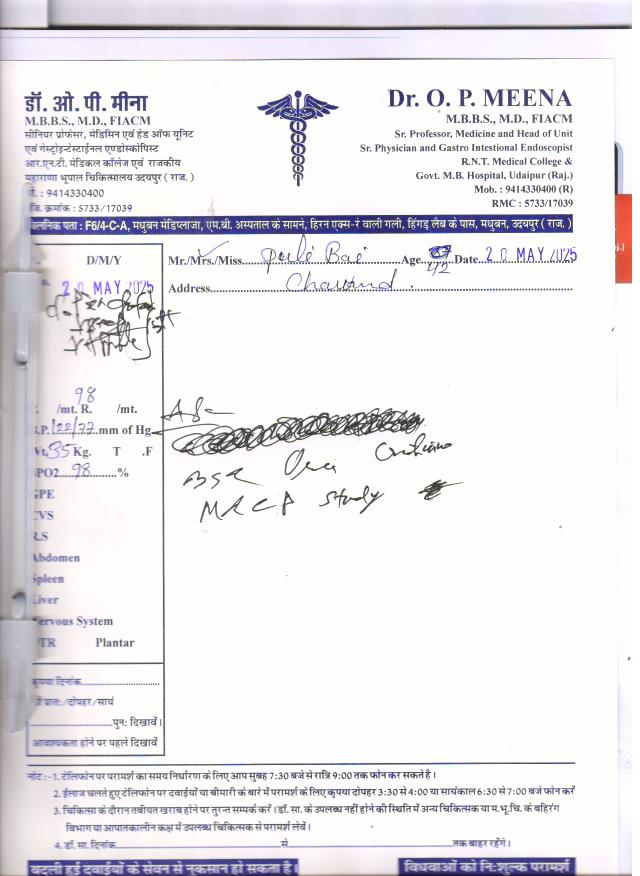 डॉ. ओ. पी. मीना
M.B.B.S., M.D., FIACM
सीनियर प्रोफेसर, मेडिसिन एवं हेड ऑफ यूनिट
एवं गेस्ट्रोइन्टेस्टाईनल एण्डोस्कोपिस्ट
आर.एन.टी. मेडिकल कॉलेज एवं राजकीय
महाराणा भूपाल चिकित्सालय उदयपुर ( राज. )
: 9414330400
क्रमांक : 5733/17039
Dr. O. P. MEENA
M.B.B.S., M.D., FIACM
Sr. Professor, Medicine and Head of Unit
Sr. Physician and Gastro Intestional Endoscopist
R.N.T. Medical College &
Govt. M.B. Hospital, Udaipur (Raj.)
Mob. : 9414330400 (R)
RMC : 5733/17039
पता : F6/4-C-A, मधुबन मेडिप्लाजा, एम.बी. अस्पताल के सामने, हिरन एक्स-रे वाली गली, हिंगड़ लैब के पास, मधुबन, उदयपुर ( राज. )
D/M/Y
20 MAY 2025
Mr./Mrs./Miss Age 42 Date 20 MAY 2025
Address
98
/mt. R. /mt.
B.P. 122/77 mm of Hg
Wt. 35 Kg. T .F
SPO2 98 %
GPE
CVS
R.S
Abdomen
Spleen
Liver
Nervous System
DTR Plantar
MRCP study
कृपया दिनांक
प्रातः/दोपहर/सायं
पुनः दिखावें।
आवश्यकता होने पर पहले दिखावें
नोट :- 1. टेलिफोन पर परामर्श का समय निर्धारण के लिए आप सुबह 7:30 बजे से रात्रि 9:00 तक फोन कर सकते है।
2. ईलाज चलते हुए टेलिफोन पर दवाईयों या बीमारी के बारे में परामर्श के लिए कृपया दोपहर 3:30 से 4:00 या सायंकाल 6:30 से 7:00 बजे फोन करें
3. चिकित्सा के दौरान तबीयत खराब होने पर तुरन्त सम्पर्क करें। डॉ. सा. के उपलब्ध नहीं होने की स्थिति में अन्य चिकित्सक या म.भू.चि. के बहिरंग
विभाग या आपातकालीन कक्ष में उपलब्ध चिकित्सक से परामर्श लेवें।
4. डॉ. सा. दिनांक से तक बाहर रहेंगे।
बदली हुई दवाईयों के सेवन से नुकसान हो सकता है।
विधवाओं को निःशुल्क परामर्श